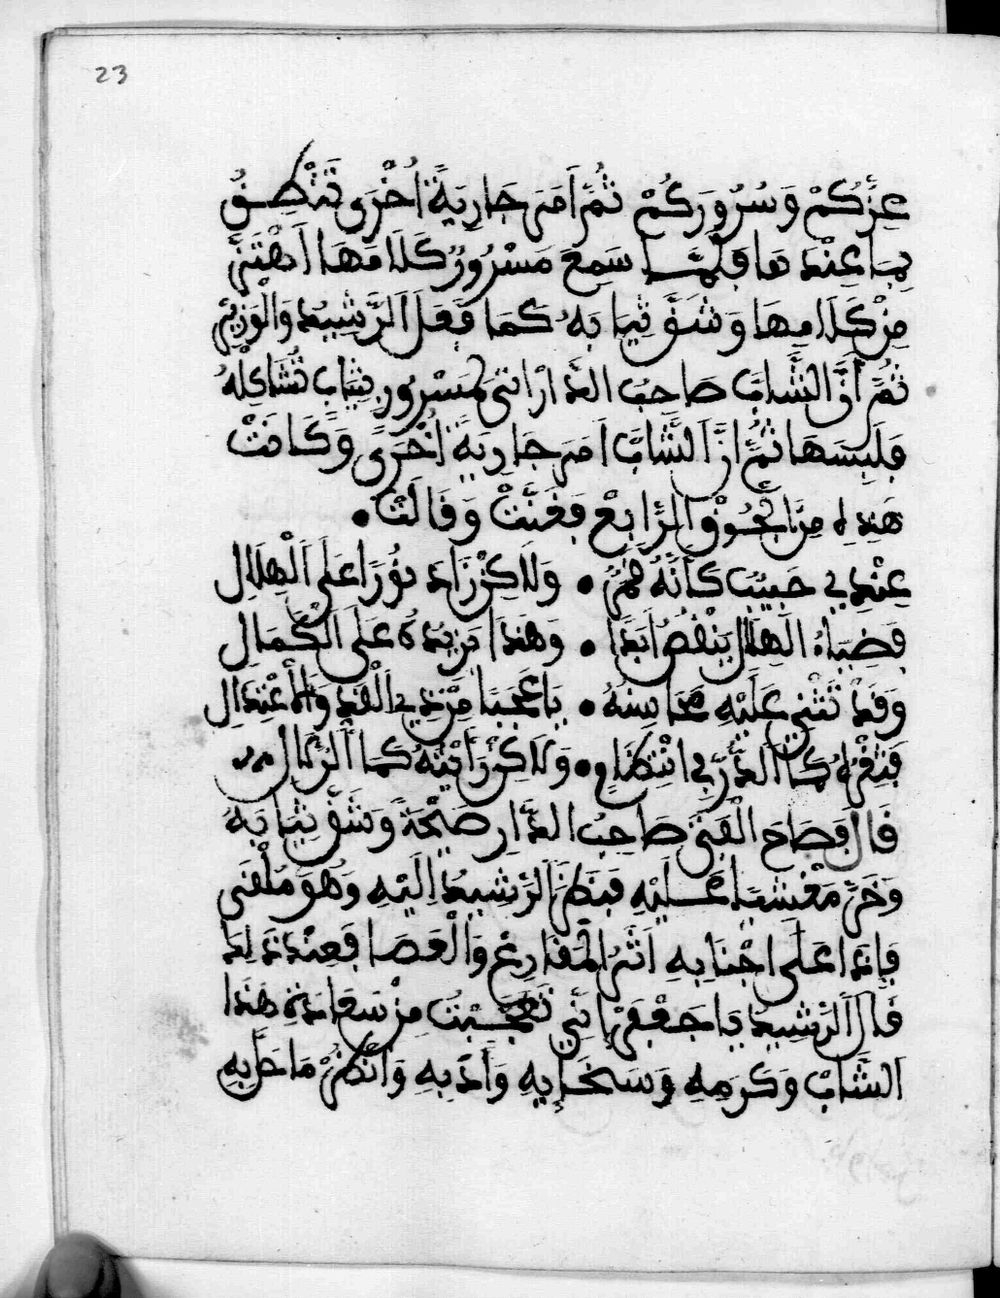 23
عِزُّكُمْ وَسُرُورَكُمْ ثُمَّ اَمَرَ جَارِيَةً اُخْرَى تَنْطِقُ
بِمَا عِنْدَهَا فَلَمَّا سَمِعَ مَسْرُورُ كَلَامَهَا اَهْتَزَّ
مِنْ كَلَامِهَا وَشَقَّ ثِيَابَهُ كَمَا فَعَلَ الرَّشِيدُ وَالْوَزِيرُ
ثُمَّ أَنَّ الشَّابَّ صَاحِبَ الدَّارْ اتى لِمَسْرُورِ بثيَابِ تُشَاكِلْهُ
فَلَبِسَهَا ثُمَّ اَنَّ الشَّابَّ اَمَرَ جَارِيَةً اُخْرَى وَكَانَتْ
هَذِهِ مِنَ الْجُوْقِ الرَّابِعْ فَغَنَّتْ وَقَالَتْ •
عِنْدِي حَبِيبٌ كَأَنَّهُ قَمَرُ • وَلَاكِنْ زَادَ نُورًا عَلَى الْهِلَالِ
فَضِيَاءُ الهِلَالِ يَنْقُصُ اَبَدًا • وَهَذَا يَزِيدُهُ عَلَى الْكَمَالِ
وَقَدْ تَثَنِّي عَلَيْهِ مَحَاسِنُهُ • يَا عَجَبًا مِنْ ذِي الْقَدِ وَالْأعْتِدَالِ
فَثَغْرُهُ كَمَا الدُّرِّ فِي انْتِظَامٍ • وَلَاكِنْ رَايْتُهُ كَمَا الزُّلَالِ
قَالَ فَصَاحَ الْفَتَى صَاحِبُ الدَّارِ صَيْحَةً وَشَقَّ ثِيَابَهُ
وَخَرَّ مَغْشِيًّا عَلَيْهِ فَنَظَرَ الرَّشِيدُ اِلَيْهِ وَهُوَ مُلْقَى
فَاِذَا عَلَى اجْنَابِهِ اَثَرُ الْمَقَارِعْ وَالْعَصَا فَعِنْدَ ذَلِكَ
قَالَ الرَّشِيدُ يَا جَعْفَرْ اِنِّي تَعَجَّبْتُ مِنْ سَعَادَةِ هَذَا
الشَّابِّ وَكَرَمِهِ وَسَخَايِهِ وَأَدَبِهِ وَانْظُرْ مَا حَلَّ بِهِ